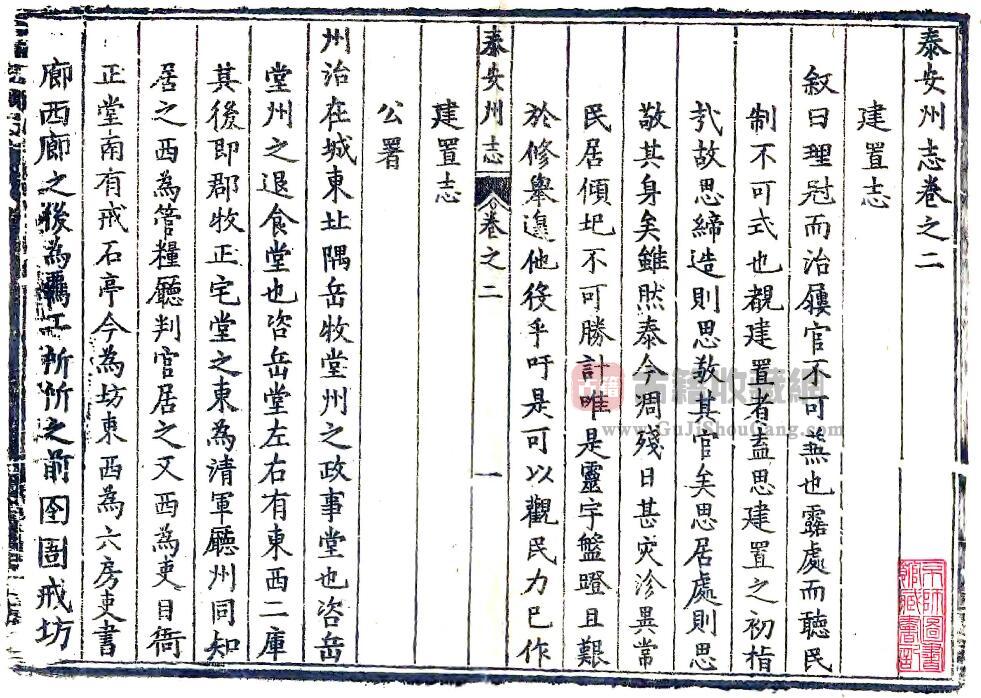 泰安州志卷之二
建置志
叙曰理尅而治羼官不可無也露處而聽民
制不可式也覩建置者盍思建置之初栺
哉故思締造則思敬其官矣思居處則思
敬其身矣雖然泰今凋殘日甚灾沴異常
民居傾圮不可勝計唯是靈宇盤蹬且艱
於修舉遑他役乎吁是可以觀民力已作
建置志
泰安州志 卷之二 一
公署
州治在城東北隅岳牧堂州之政事堂也咨岳
堂州之退食堂也咨岳堂左右有東西二庫
其後即郡牧正宅堂之東為清軍廳州同知
居之西為管糧廳判官居之又西為吏目衙
正堂南有戒石亭今為坊東西為六房吏書
廊西廊之後為
之前囹圄戒坊
古籍收藏網
www.GuJiShouCang.com
京師圖書館藏書記